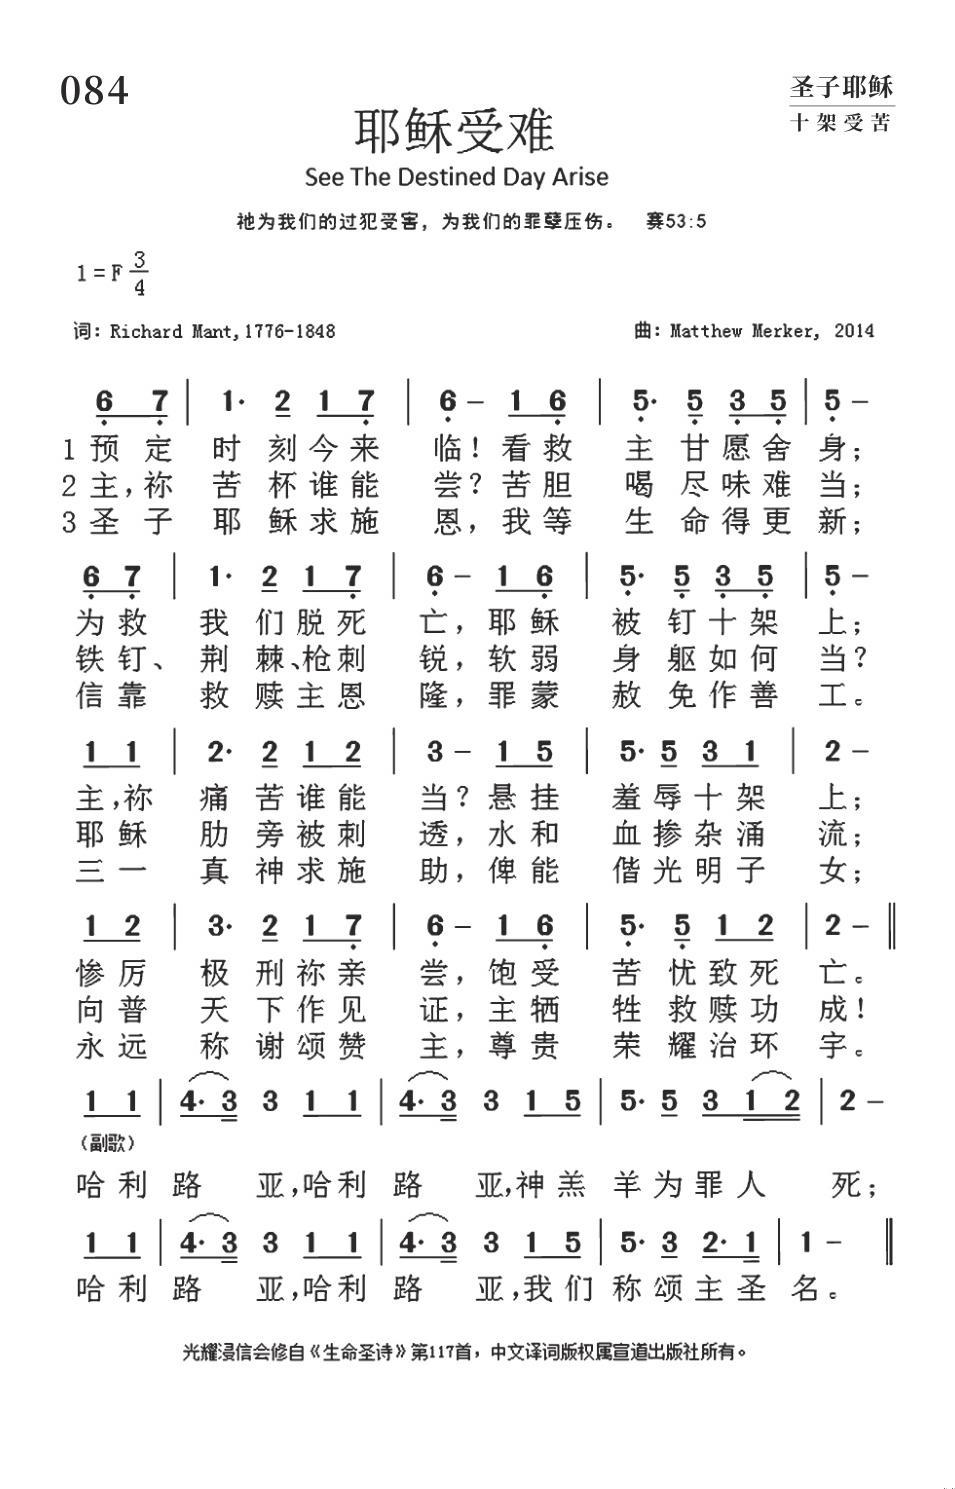 084
圣子耶稣
十架受苦
耶稣受难
See The Destined Day Arise
祂为我们的过犯受害，为我们的罪孽压伤。 赛53:5
1=F 3/4
词: Richard Mant,1776-1848 曲: Matthew Merker, 2014
6 7 | 1· 2 1 7 | 6 - 1 6 | 5· 5 3 5 | 5 -
1 预定 时刻今来 临！看救 主甘愿舍 身；
2 主，祢 苦杯谁能 尝？苦胆 喝尽味难 当；
3 圣子 耶稣求施 恩，我等 生命得更 新；
6 7 | 1· 2 1 7 | 6 - 1 6 | 5· 5 3 5 | 5 -
为救 我们脱死 亡，耶稣 被钉十架 上；
铁钉、荆棘、枪刺 锐，软弱 身躯如何 当？
信靠 救赎主恩 隆，罪蒙 赦免作善 工。
1 1 | 2· 2 1 2 | 3 - 1 5 | 5· 5 3 1 | 2 -
主，祢 痛苦谁能 当？悬挂 羞辱十架 上；
耶稣 肋旁被刺 透，水和 血掺杂涌 流；
三一 真神求施 助，俾能 偕光明子 女；
1 2 | 3· 2 1 7 | 6 - 1 6 | 5· 5 1 2 | 2 - ‖
惨厉 极刑祢亲 尝，饱受 苦忧致死 亡。
向普 天下作见 证，主牺 牲救赎功 成！
永远 称谢颂赞 主，尊贵 荣耀治环 宇。
1 1 | 4· 3 3 1 1 | 4· 3 3 1 5 | 5· 5 3 1 2 | 2 -
（副歌）
哈利 路 亚，哈利 路 亚，神羔 羊为罪人 死；
1 1 | 4· 3 3 1 1 | 4· 3 3 1 5 | 5· 3 2· 1 | 1 - ‖
哈利 路 亚，哈利 路 亚，我们 称颂主圣 名。
光耀浸信会修自《生命圣诗》第117首，中文译词版权属宣道出版社所有。